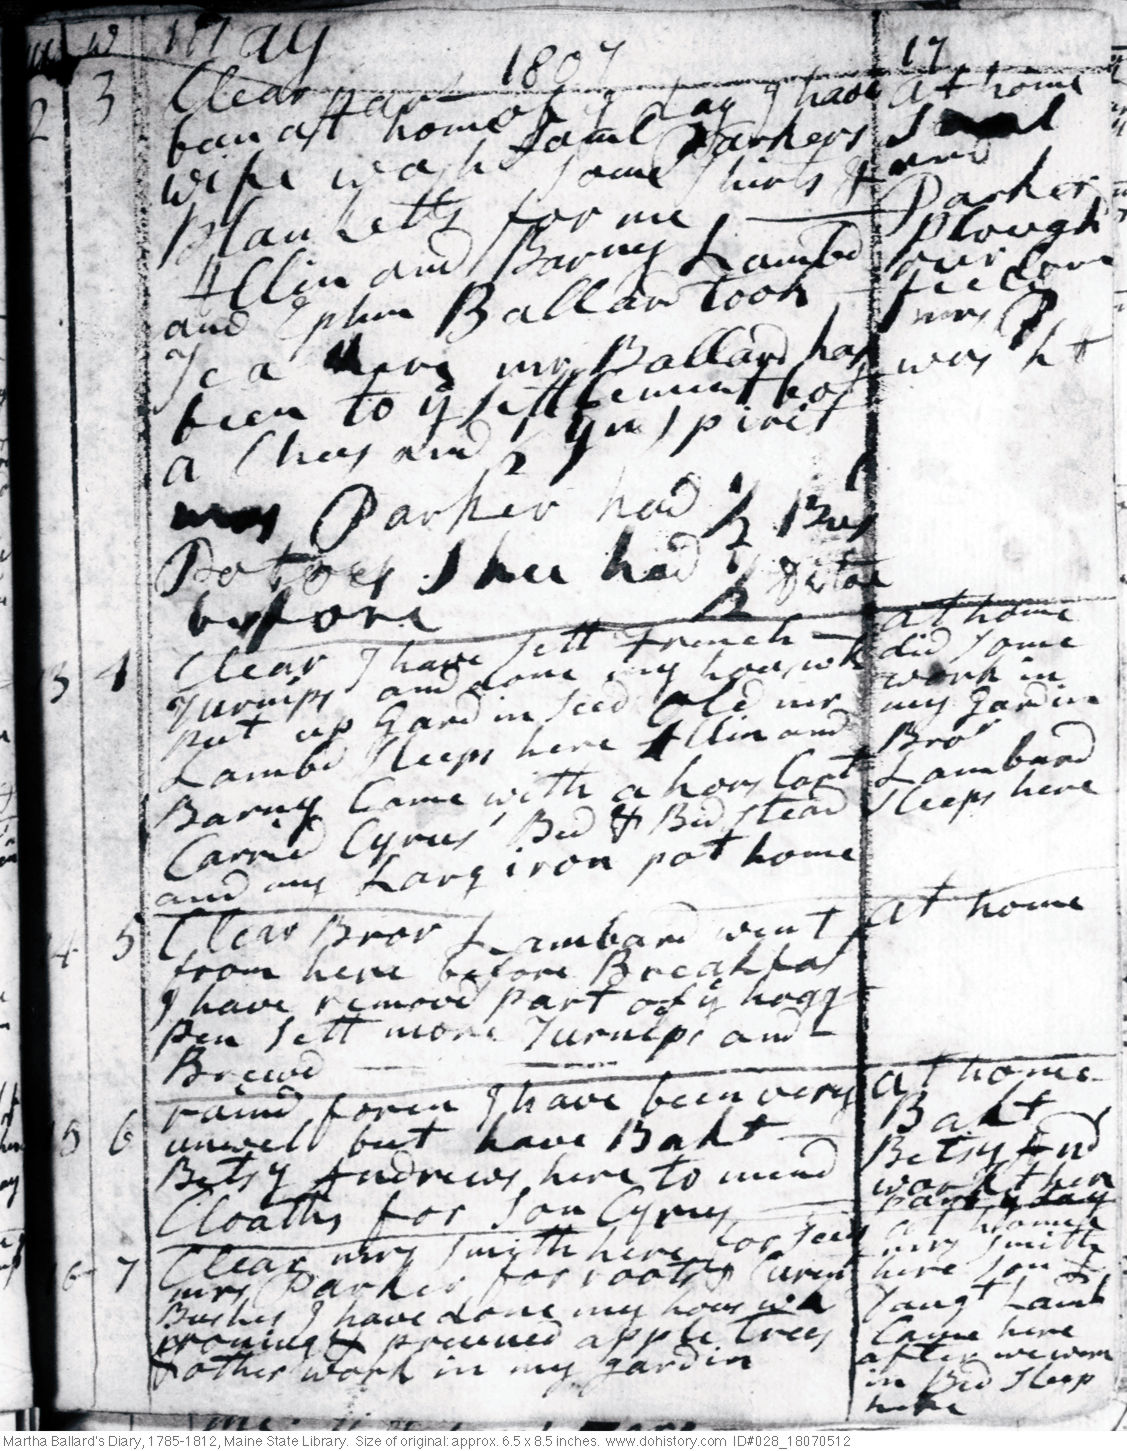 May 1807 17
2 3 Clear part of ye day I have
ban att home Saml Parkers
wife washt some shirts &
Blanketts for me
Allin and Barny Lambd
and Ephm Ballard took
Tea here mr Ballard has
been to ye settlement bot
a Chees and 2 qts spirit
mrs Parker had 1/2 Bus
Potoes Shee had 1/2 ditoe
before
at home
and
Parker
Plough
our
field
mrs P
washt
3 4 Clear I have sett French
Turnips and done my houswk
put up Gardin seed Old mr
Lambd sleeps here Allin and
Barny Came with a hors Cart
Carried Cyrus' Bed & Bedstead
and my Larg iron pot home
at home
did some
work in
my gardin
Bror
Lambard
sleeps here
4 5 Clear Bror Lambard went
from here before Breakfas
I have removd part of ye hogg
pen sett more Turnips and
Brewd
at home
5 6 raind foren I have been very
unwel but have Bakt
Betsy Andrews here to mend
Cloaths for Son Cyrus
at home
Bakt
Betsy And
workt here
part ye day
6 7 Clear mrs Smith here for seeds
mrs Parker for roots & Curent
Bushes I have done my hous wk
ironing & pruened apple trees
& other work in my gardin
at home
mrs Smith
here Son &
Daugt Lamb
Came here
after we wern
in Bed sleep
here
Martha Ballard's Diary, 1785-1812, Maine State Library. Size of original: approx. 6.5 x 8.5 inches. www.dohistory.com ID#028_18070512